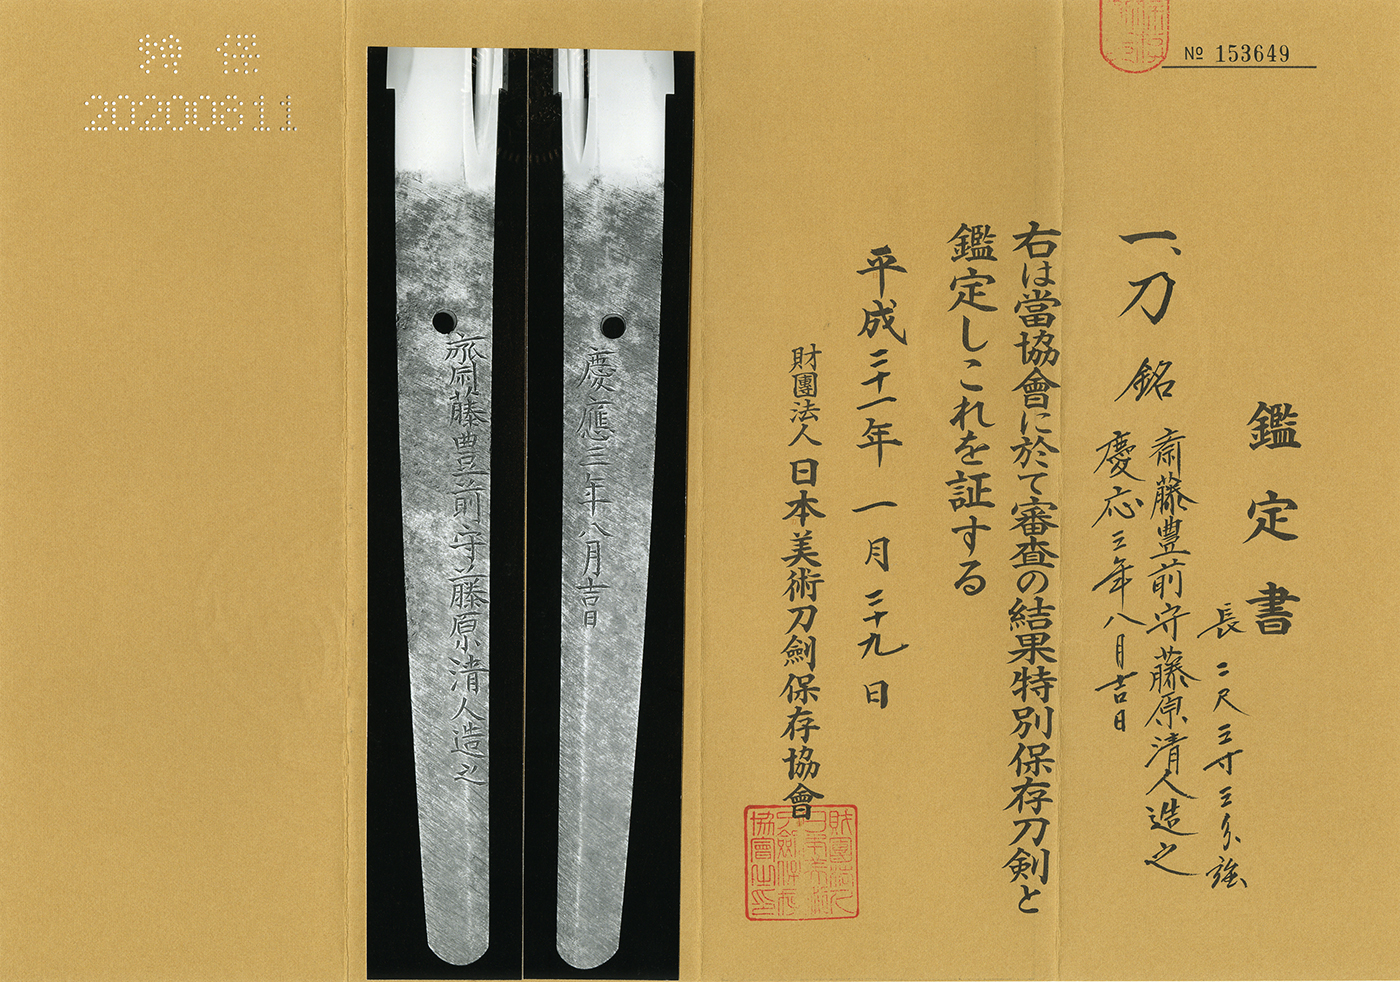 № 153649
鑑定書
一、刀 銘 斎藤豊前守藤原清人造之
慶応三年八月吉日
長二尺三寸三分強
右は當協會に於て審査の結果特別保存刀剣と
鑑定しこれを証する
平成二十一年一月二十九日
財團法人日本美術刀劍保存協會
慶應三年八月吉日
齋藤豊前守藤原清人造之
特保
20200811